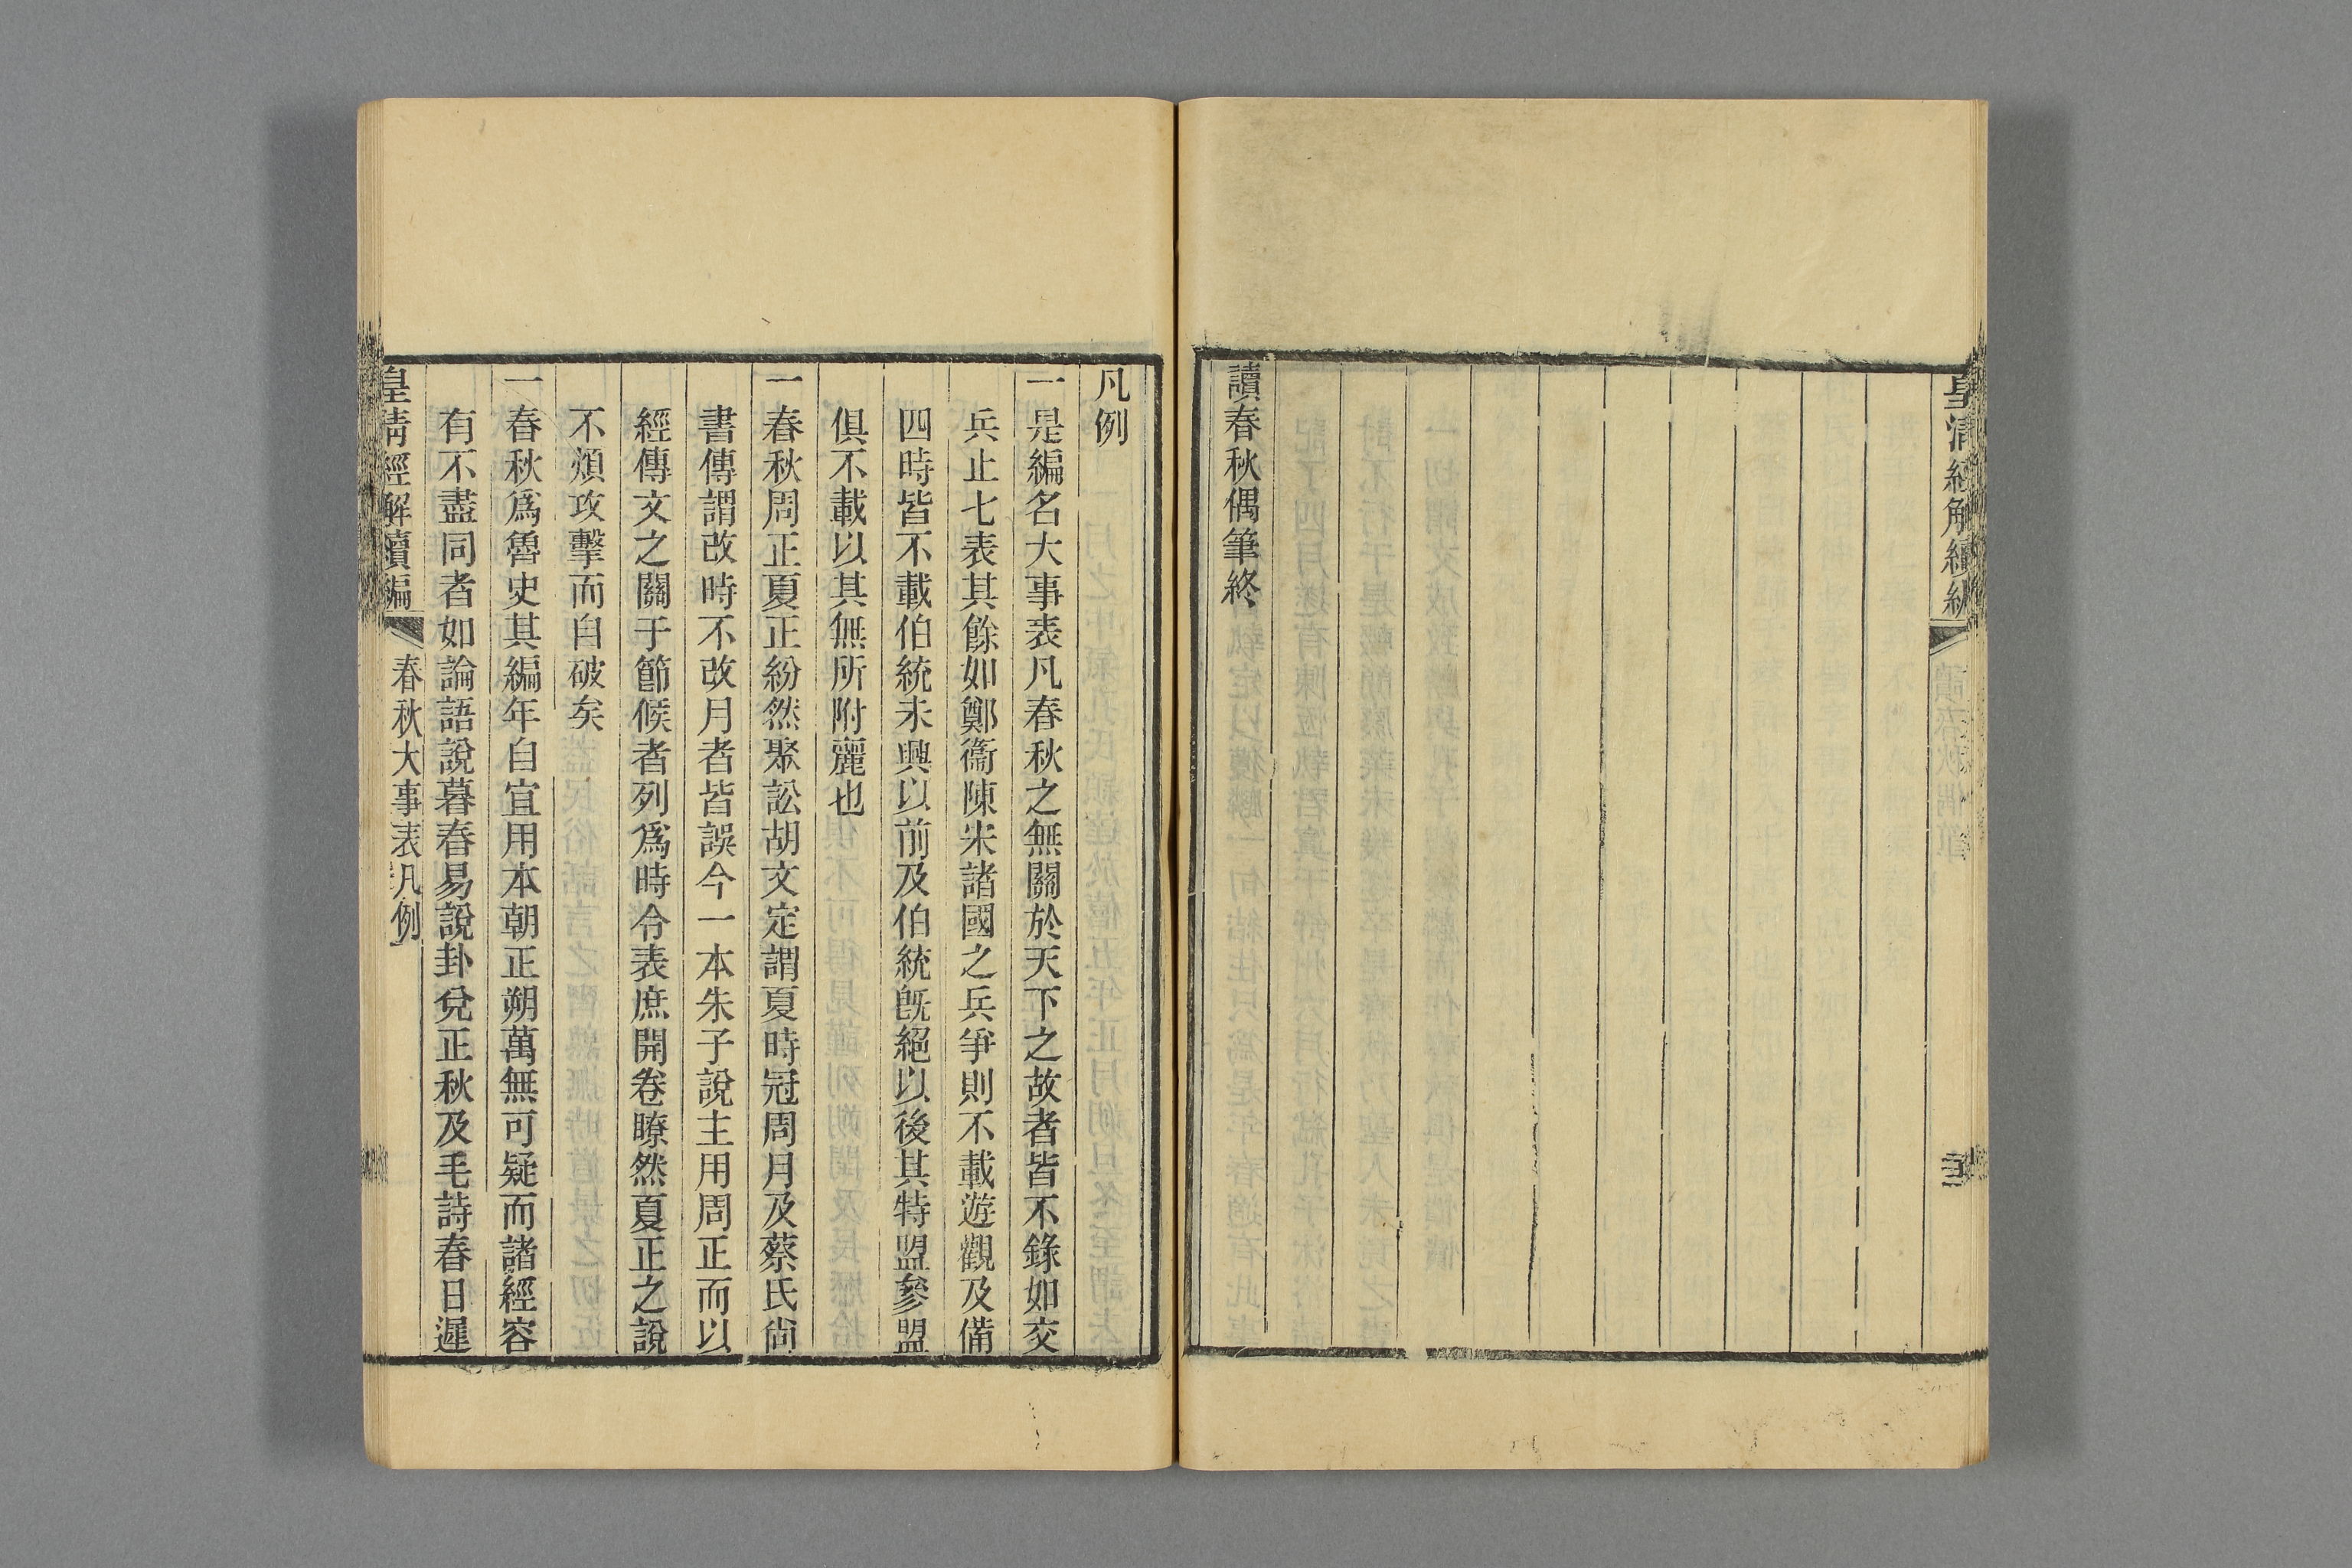 皇清經解續編
讀春秋偶筆終
凡例
一是編名大事表凡春秋之無關於天下之故者皆不錄如交
兵止七表其餘如鄭衞陳宋諸國之兵爭則不載遊觀及備
四時皆不載伯統未興以前及伯統旣絕以後其特盟參盟
俱不載以其無所附麗也
一春秋周正夏正紛然聚訟胡文定謂夏時冠周月及蔡氏尙
書傳謂改時不改月者皆誤今一本朱子說主用周正而以
經傳文之關于節候者列爲時令表庶開卷瞭然夏正之說
不煩攻擊而自破矣
一春秋爲魯史其編年自宜用本朝正朔萬無可疑而諸經容
有不盡同者如論語說暮春易說卦兌正秋及毛詩春日遲
皇清經解續編
春秋大事表凡例